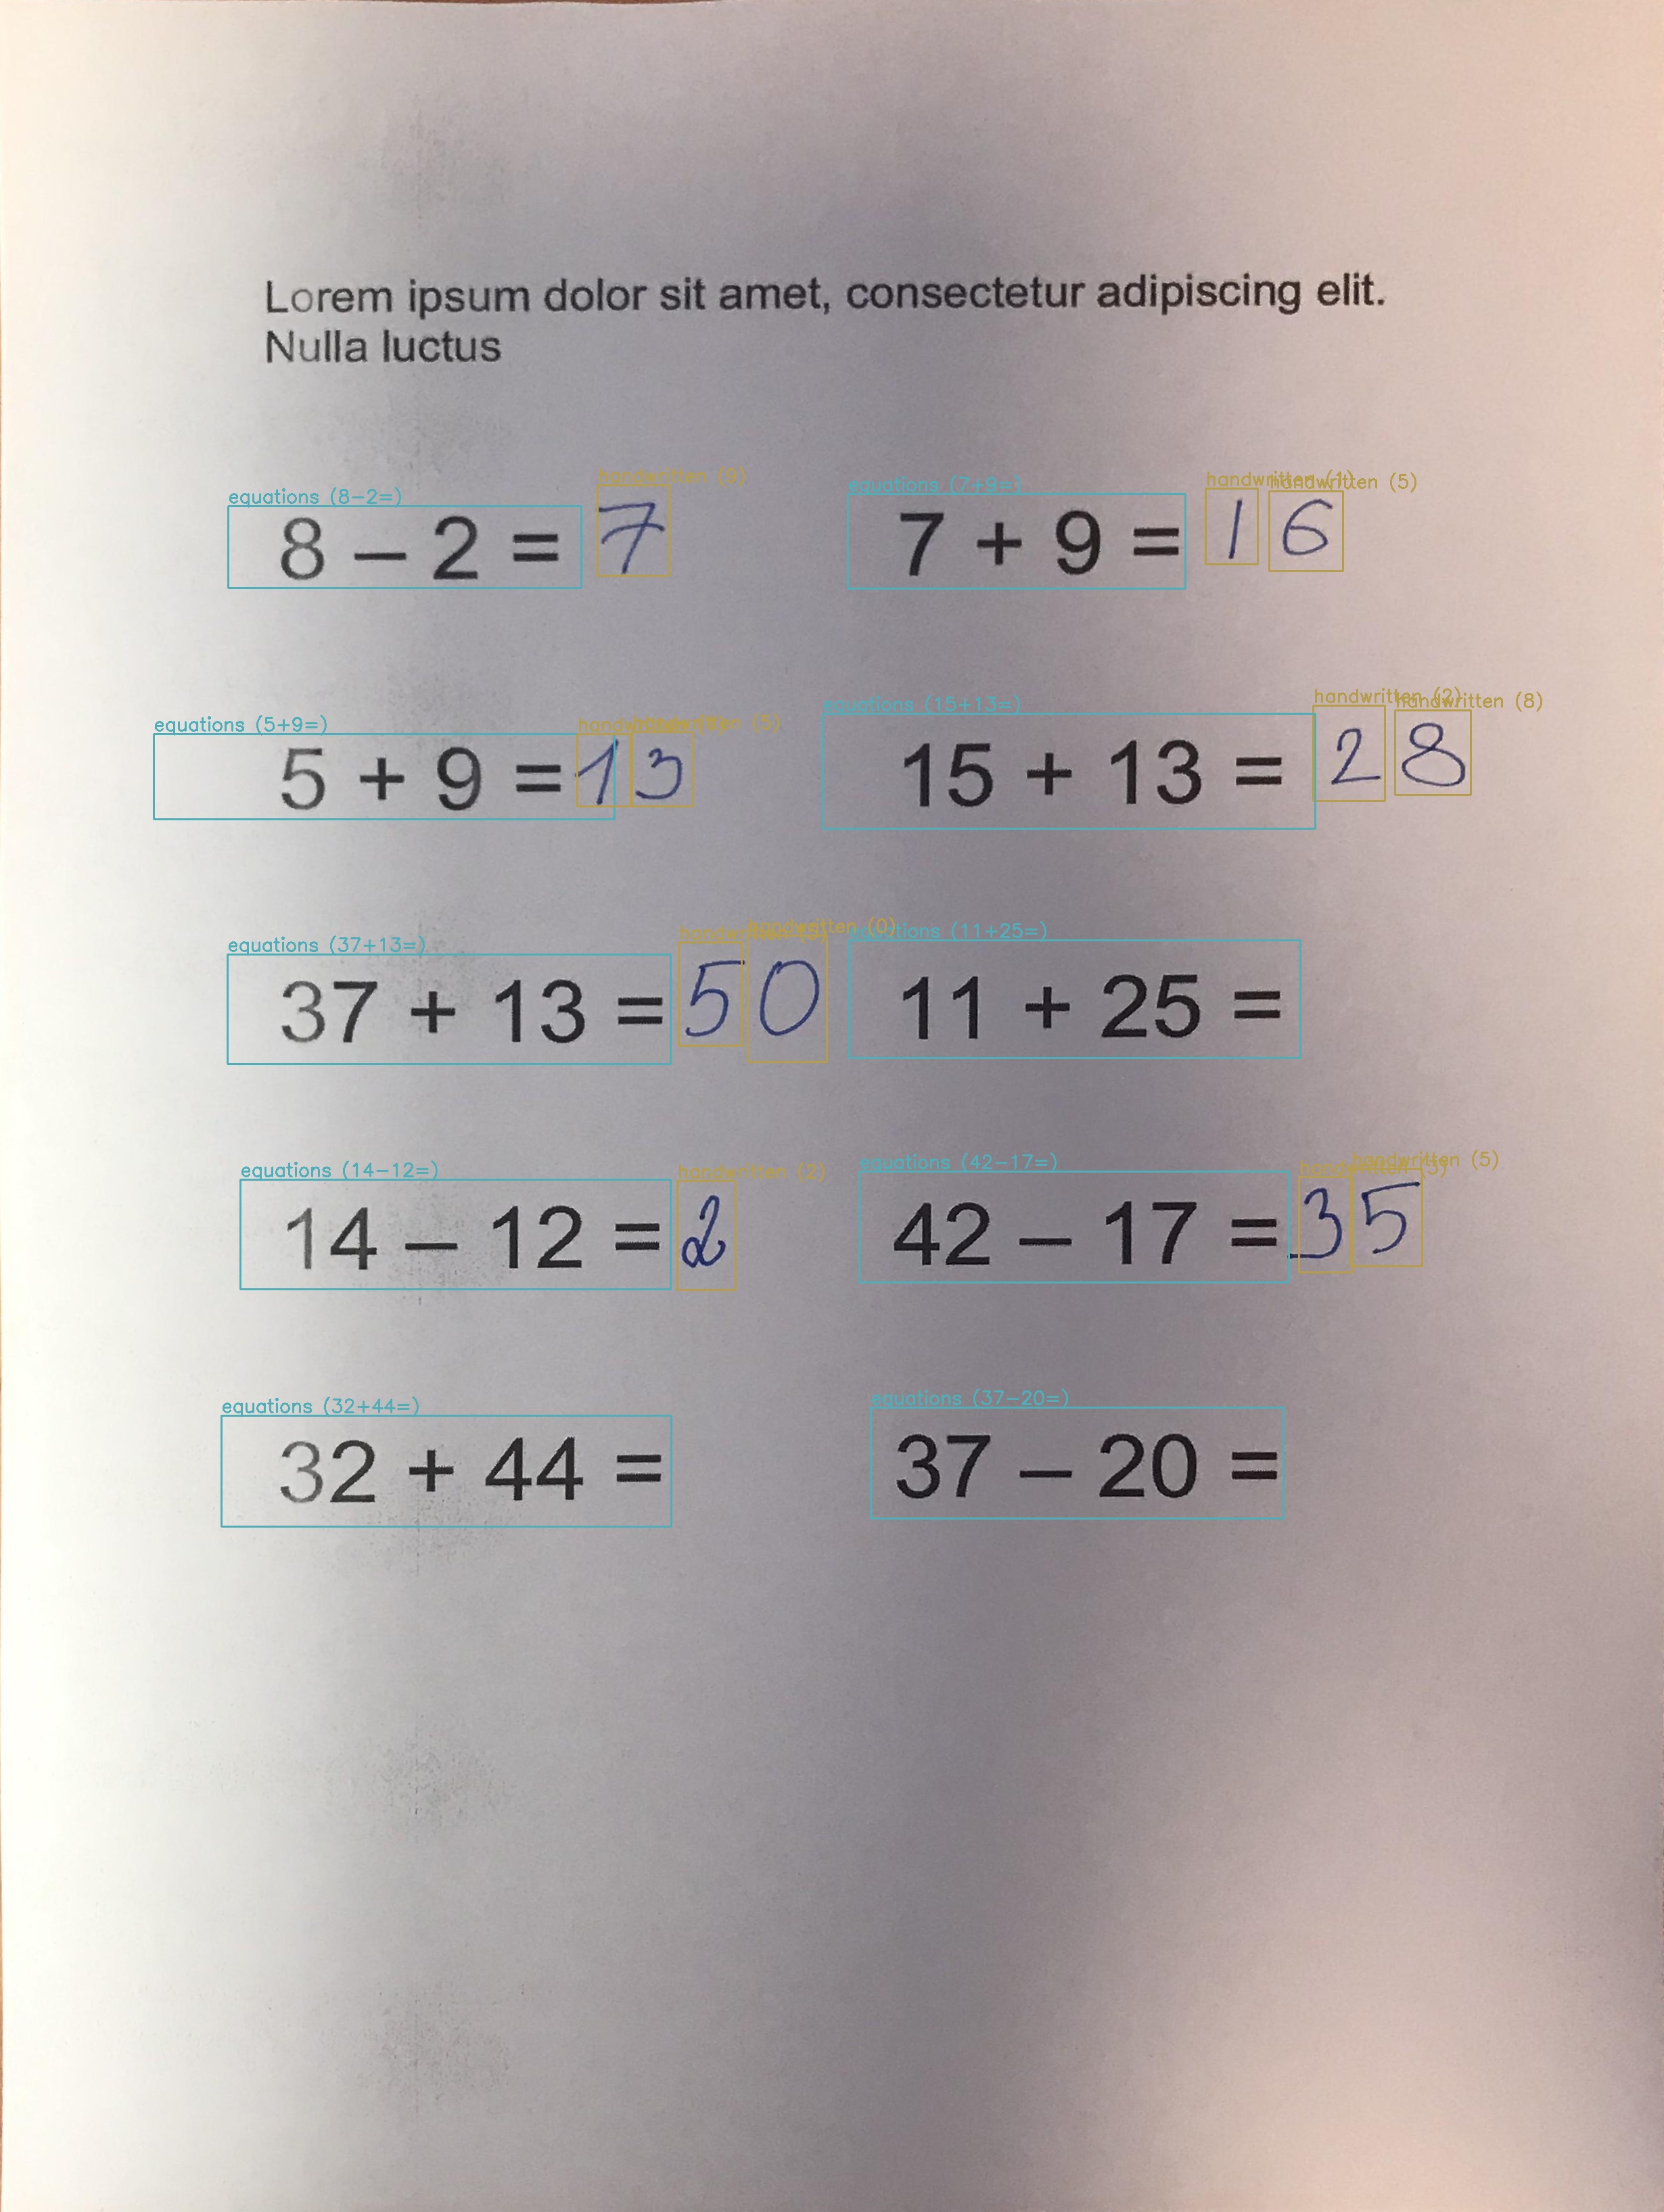 Lorem ipsum dolor sit amet, consectetur adipiscing elit.
Nulla luctus
handwritten (9)
equations (8-2=)
8 – 2 = 7
equations (7+9=)
handwritten (1)
handwritten (5)
7 + 9 = 16
equations (5+9=)
handwritten
handwritten (5)
5 + 9 = 13
equations (15+13=)
handwritten (2)
handwritten (8)
15 + 13 = 28
equations (37+13=)
handwritten
handwritten (0)
37 + 13 = 50
equations (11+25=)
11 + 25 =
equations (14-12=)
handwritten (2)
14 – 12 = 2
equations (42-17=)
handwritten
handwritten (5)
42 – 17 = 35
equations (32+44=)
32 + 44 =
equations (37-20=)
37 – 20 =